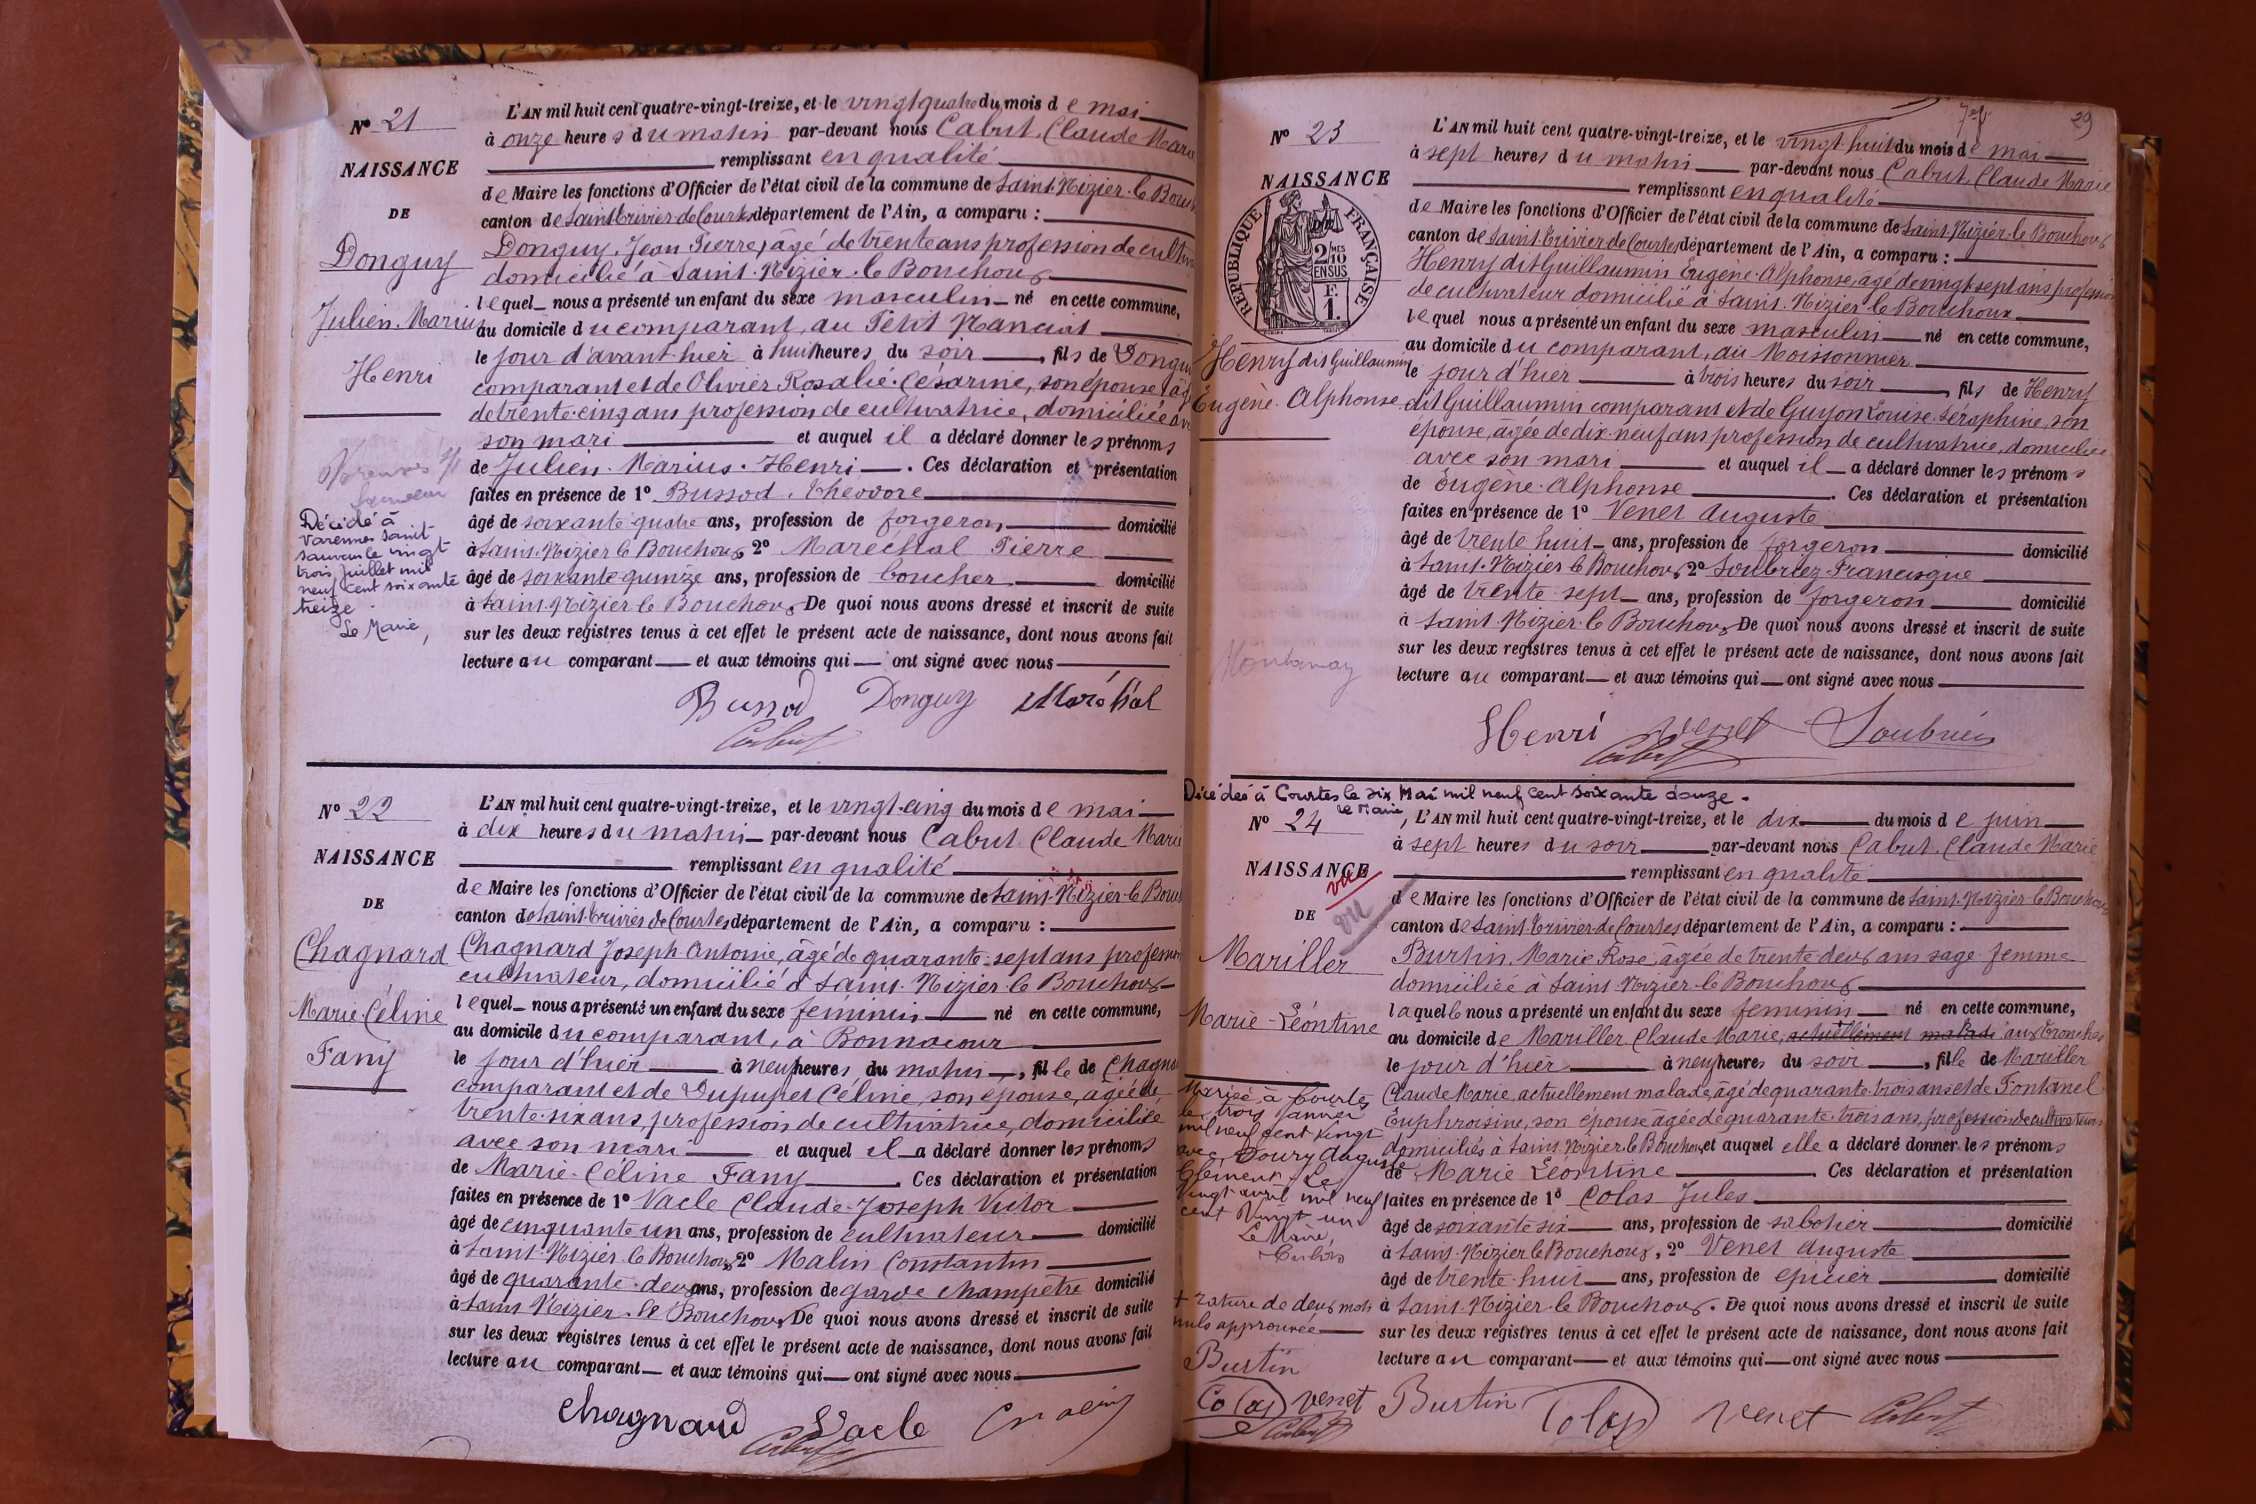 N° 21
NAISSANCE
DE
Donguy
Julien Marius
Henri
Décédé à
Varennes Saint
Sauveur le vingt
trois juillet mil
neuf cent soixante
treize
Le Maire,
L'AN mil huit cent quatre-vingt-treize, et le vingt quatre du mois de mai
à onze heures du matin par-devant nous Cabut, Claude Marie
remplissant en qualité
de Maire les fonctions d'Officier de l'état civil de la commune de Saint-Nizier-le-Boux
canton de Saint Trivier-de-Courtes département de l'Ain, a comparu :
Donguy, Jean Pierre, âgé de trente ans profession de cultiva
domicilié à Saint-Nizier-le-Bouchoux
lequel nous a présenté un enfant du sexe masculin né en cette commune,
au domicile du comparant, au Petit Manciat
le jour d'avant-hier à huit heures du soir, fils de Donguy
comparant et de Olivier Rosalie-Césarine, son épouse, âg
de trente-cinq ans profession de cultivatrice, domiciliée av
son mari et auquel il a déclaré donner les prénoms
de Julien-Marius-Henri. Ces déclaration et présentation
faites en présence de 1° Bussod, Théodore
âgé de soixante-quatre ans, profession de forgeron domicilié
à Saint-Nizier le Bouchoux, 2° Maréchal Pierre
âgé de soixante-quinze ans, profession de boucher domicilié
à Saint-Nizier le Bouchoux. De quoi nous avons dressé et inscrit de suite
sur les deux registres tenus à cet effet le présent acte de naissance, dont nous avons fait
lecture au comparant et aux témoins qui ont signé avec nous
Bussod Donguy Maréchal
Cabut
N° 22
NAISSANCE
DE
Chagnard
Marie Céline
Fany
L'AN mil huit cent quatre-vingt-treize, et le vingt-cinq du mois de mai
à dix heures du matin par-devant nous Cabut Claude Marie
remplissant en qualité
de Maire les fonctions d'Officier de l'état civil de la commune de Saint-Nizier-le-Boux
canton de Saint Trivier de Courtes département de l'Ain, a comparu :
Chagnard Joseph Antoine, âgé de quarante-sept ans profession
cultivateur, domicilié à Saint-Nizier-le Bouchoux
lequel nous a présenté un enfant du sexe féminin né en cette commune,
au domicile du comparant, à Bonnacour
le jour d'hier à neuf heures du matin, fille de Chagnard
comparant et de Dupupet Céline, son épouse, agée de
trente-six ans, profession de cultivatrice, domiciliée
avec son mari et auquel il a déclaré donner les prénoms
de Marie-Céline Fany. Ces déclaration et présentation
faites en présence de 1° Vacle Claude-Joseph Victor
âgé de cinquante un ans, profession de cultivateur domicilié
à Saint-Nizier le Bouchoux, 2° Malin Constantin
âgé de quarante-deux ans, profession de garde champêtre domicilié
à Saint Nizier-le Bouchoux. De quoi nous avons dressé et inscrit de suite
sur les deux registres tenus à cet effet le présent acte de naissance, dont nous avons fait
lecture au comparant et aux témoins qui ont signé avec nous.
Chagnard Vacle
Cabut
29
N° 23
NAISSANCE
REPUBLIQUE FRANÇAISE
2/10 MES
EN SUS
F.
1.
Henry dit Guillaumin
Eugène Alphonse
Montanay
L'AN mil huit cent quatre-vingt-treize, et le vingt huit du mois de mai
à sept heures du matin par-devant nous Cabut, Claude Marie
remplissant en qualité
de Maire les fonctions d'Officier de l'état civil de la commune de Saint-Nizier-le Bouchoux
canton de Saint-Trivier de Courtes département de l'Ain, a comparu :
Henry dit Guillaumin Eugène-Alphonse, agé de vingt-sept ans profession
de cultivateur domicilié à Saint-Nizier le Bouchoux
lequel nous a présenté un enfant du sexe masculin né en cette commune,
au domicile du comparant, au Moissonnier
le jour d'hier à trois heures du soir, fils de Henry
dit Guillaumin comparant et de Guyon Louise-Séraphine, son
épouse, agée de dix-neuf ans profession de cultivatrice, domiciliée
avec son mari et auquel il a déclaré donner les prénoms
de Eugène-Alphonse. Ces déclaration et présentation
faites en présence de 1° Venet Auguste
âgé de trente huit ans, profession de forgeron domicilié
à Saint-Nizier le Bouchoux, 2° Soubriez Francisque
âgé de trente-sept ans, profession de forgeron domicilié
à Saint-Nizier-le Bouchoux. De quoi nous avons dressé et inscrit de suite
sur les deux registres tenus à cet effet le présent acte de naissance, dont nous avons fait
lecture au comparant et aux témoins qui ont signé avec nous
Henri Venet
Cabut
Décédée à Courtes le dix Mai mil neuf cent soixante douze.
Le Maire,
N° 24
NAISSANCE
vu
DE
vu
Mariller
Marie-Léontine
Mariée à Courtes
le trois janvier
mil neuf cent vingt
avec Doury Auguste
Clément. Le
vingt avril mil neuf
cent vingt un
Le Maire,
+ rature de deux mots
nuls approuvée
Burtin
Colas Venet
Cabut
L'AN mil huit cent quatre-vingt-treize, et le dix du mois de juin
à sept heures du soir par-devant nous Cabut, Claude Marie
remplissant en qualité
de Maire les fonctions d'Officier de l'état civil de la commune de Saint-Nizier-le Bouchoux
canton de Saint-Trivier-de-Courtes département de l'Ain, a comparu :
Burtin Marie Rose, âgée de trente deux ans sage femme
domiciliée à Saint-Nizier-le Bouchoux
laquelle nous a présenté un enfant du sexe féminin né en cette commune,
au domicile de Mariller Claude Marie, actuellement malade aux Tronches
le jour d'hier à neuf heures du soir, fille de Mariller
Claude Marie, actuellement malade, âgé de quarante-trois ans et de Fontanel
Euphroisine, son épouse âgée de quarante-trois ans, profession de cultivateurs
domiciliés à Saint Nizier le Bouchoux, et auquel elle a déclaré donner les prénoms
de Marie Léontine. Ces déclaration et présentation
faites en présence de 1° Colas Jules
âgé de soixante six ans, profession de sabotier domicilié
à Saint-Nizier le Bouchoux, 2° Venet Auguste
âgé de trente-huit ans, profession de épicier domicilié
à Saint-Nizier-le Bouchoux. De quoi nous avons dressé et inscrit de suite
sur les deux registres tenus à cet effet le présent acte de naissance, dont nous avons fait
lecture au comparant et aux témoins qui ont signé avec nous
Burtin Colas Venet Cabut